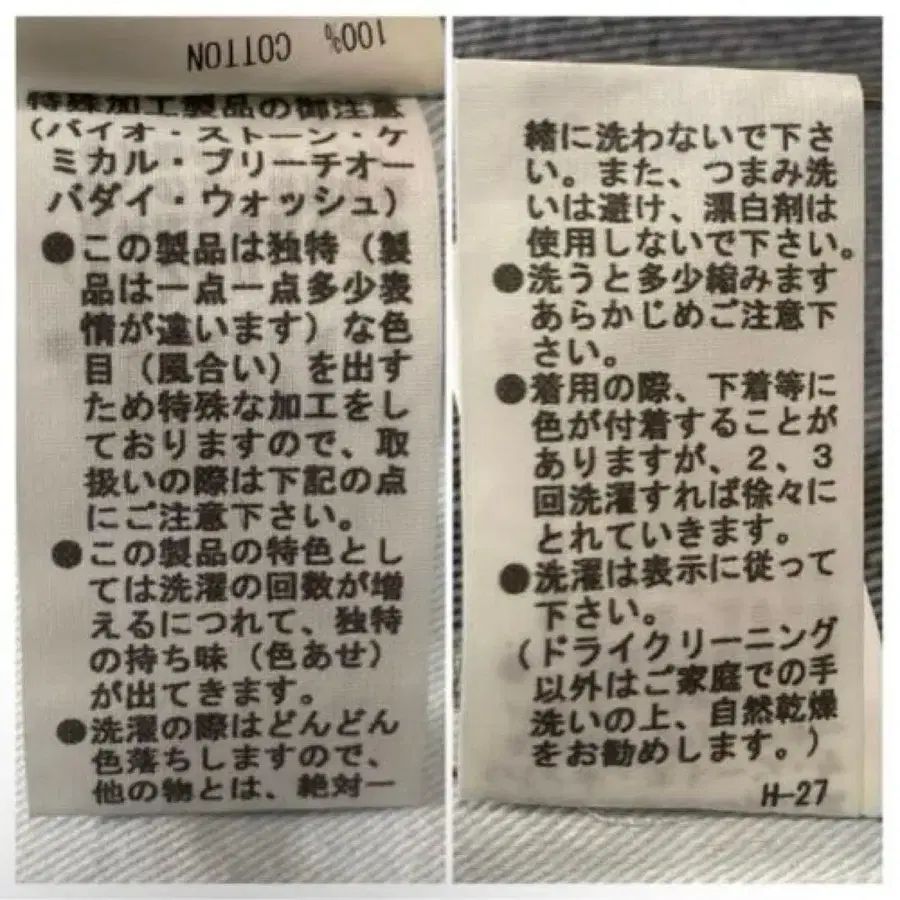 100% COTTON
特殊加工製品の御注意
(バイオ・ストーン・ケ
ミカル・ブリーチオー
バダイ・ウォッシュ)
●この製品は独特(製
品は一点一点多少表
情が違います)な色
目(風合い)を出す
ため特殊な加工をし
ておりますので、取
扱いの際は下記の点
にご注意下さい。
●この製品の特色とし
ては洗濯の回数が増
えるにつれて、独特
の持ち味(色あせ)
が出てきます。
●洗濯の際はどんどん
色落ちしますので、
他の物とは、絶対一
緒に洗わないで下さ
い。また、つまみ洗
いは避け、漂白剤は
使用しないで下さい。
●洗うと多少縮みます
あらかじめご注意下
さい。
●着用の際、下着等に
色が付着することが
ありますが、2、3
回洗濯すれば徐々に
とれていきます。
●洗濯は表示に従って
下さい。
(ドライクリーニング
以外はご家庭での手
洗いの上、自然乾燥
をお勧めします。)
H-27